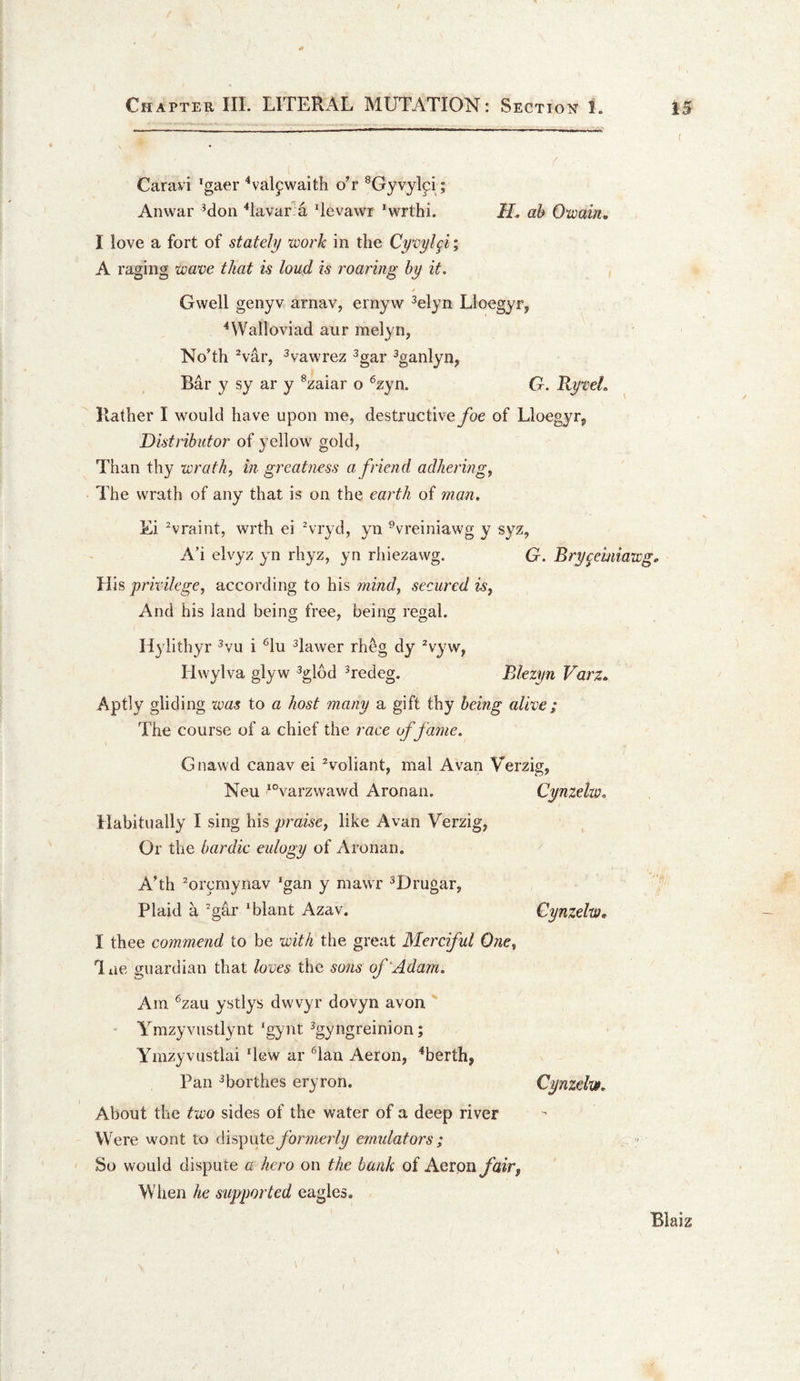 CHAPTER III. LITERAL MUTATION: SECTION 1. 15
Caravi ¹gaer ⁴valçwaith o'r ⁸Gyvylçi;
Anwar ³don ⁴lavar á ¹levawr ¹wrthi. H. ab Owain.
I love a fort of stately work in the Cyvylçi;
A raging wave that is loud is roaring by it.
Gwell genyv arnav, ernyw ³elyn Lloegyr,
⁴Walloviad aur melyn,
No'th ²vâr, ³vawrez ³gar ³ganlyn,
Bâr y sy ar y ⁸zaiar o ⁶zyn. G. Ryvel.
Rather I would have upon me, destructive foe of Lloegyr,
Distributor of yellow gold,
Than thy wrath, in greatness a friend adhering,
The wrath of any that is on the earth of man.
Ei ²vraint, wrth ei ²vryd, yn ⁹vreiniawg y syz,
A'i elvyz yn rhyz, yn rhiezawg. G. Bryçeiniawg.
His privilege, according to his mind, secured is,
And his land being free, being regal.
Hylithyr ³vu i ⁶lu ³lawer rhêg dy ²vyw,
Hwylva glyw ³glôd ³redeg. Blezyn Varz.
Aptly gliding was to a host many a gift thy being alive;
The course of a chief the race of fame.
Gnawd canav ei ²voliant, mal Avan Verzig,
Neu ¹⁰varzwawd Aronan. Cynzelw.
Habitually I sing his praise, like Avan Verzig,
Or the bardic eulogy of Aronan.
A'th ²orçmynav ¹gan y mawr ³Drugar,
Plaid à ²gâr ¹blant Azav. Cynzelw.
I thee commend to be with the great Merciful One,
The guardian that loves the sons of Adam.
Am ⁶zau ystlys dwvyr dovyn avon
Ymzyvustlynt ¹gynt ³gyngreinion;
Ymzyvustlai ¹lew ar ⁶lan Aeron, ⁴berth,
Pan ³borthes eryron. Cynzelw.
About the two sides of the water of a deep river
Were wont to dispute formerly emulators;
So would dispute a hero on the bank of Aeron fair,
When he supported eagles.
Blaiz